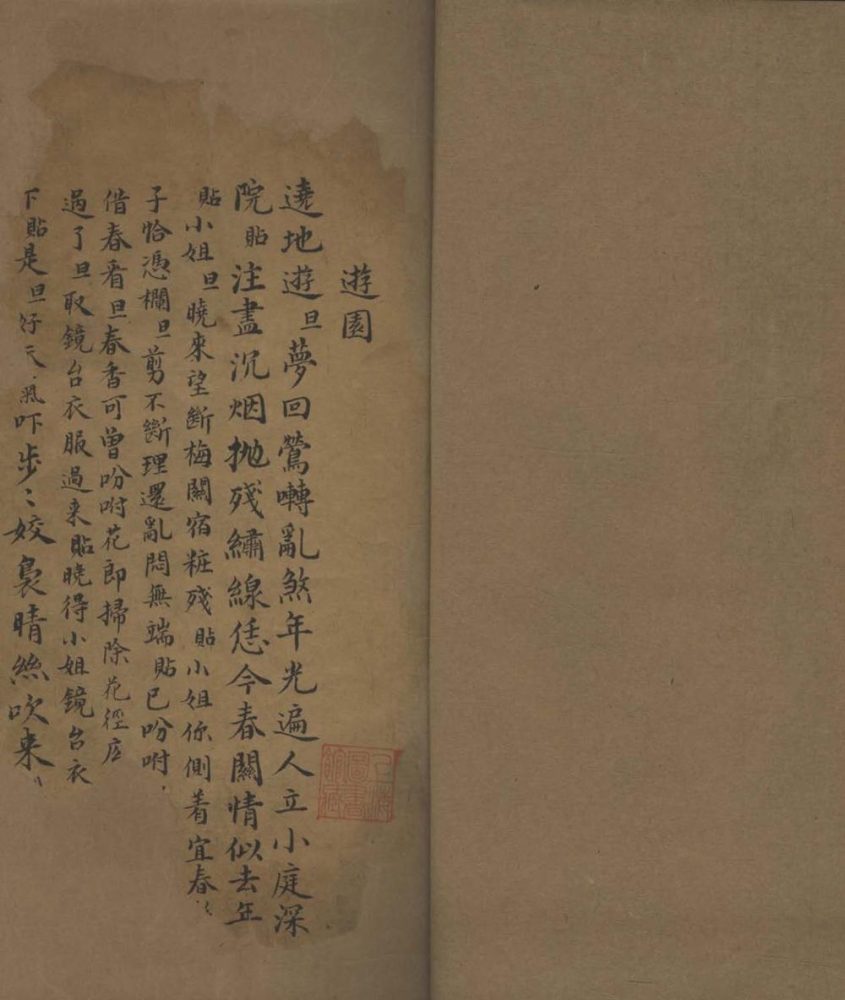 遊園
遶地遊 旦 夢回鶯囀亂煞年光遍人立小庭深
院 貼 注盡沉烟抛殘繡線恁今春關情似去年
貼 小姐 旦 曉來望斷梅關宿粧殘 貼 小姐你側着宜春
子恰憑欄 旦 剪不斷理還亂悶無端 貼 已吩咐
借春看 旦 春香可曾吩咐花郎掃除花徑広
過了 旦 取鏡台衣服過來 貼 曉得小姐鏡台衣
下 貼 是 旦 好天氣吓步〻姣裊晴絲吹來
上海圖書館藏